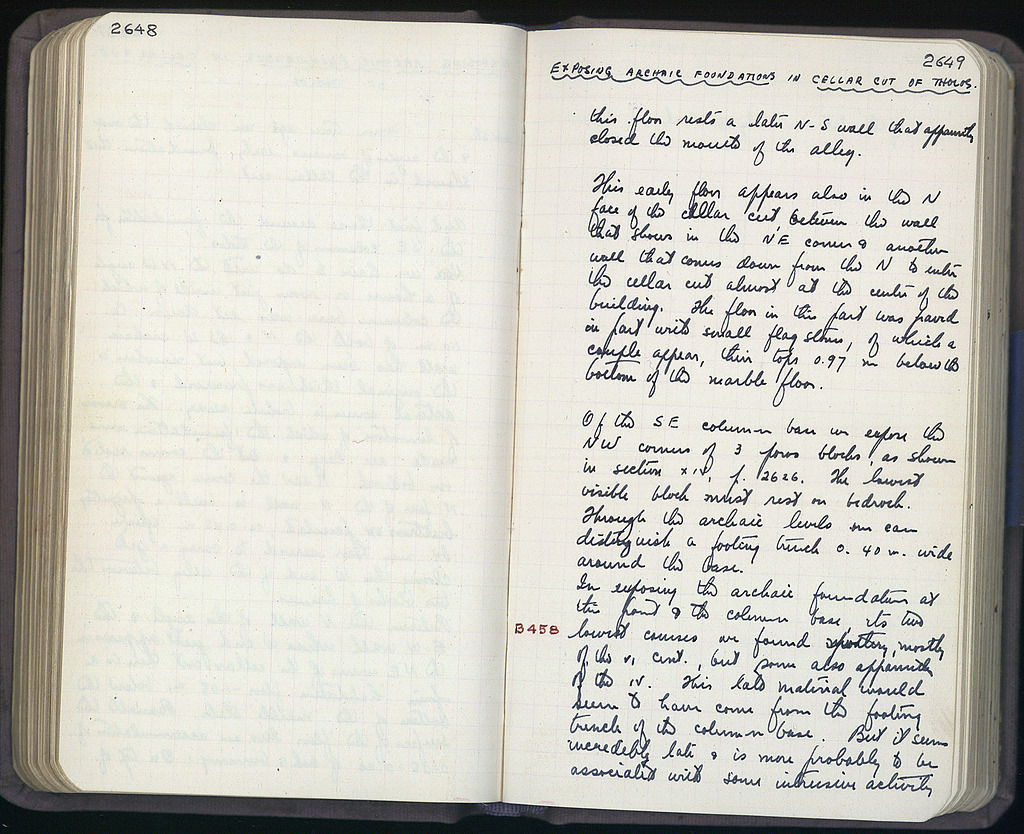 2648
2649
EXPOSING ARCHAIC FOUNDATIONS IN CELLAR CUT OF THOLOS.
this floor rests a later N-S wall that apparently
closed the mouth of the alley.
This early floor appears also in the N
face of the cellar cut, between the wall
that shows in the NE corner & another
wall that comes down from the N to enter
the cellar cut almost at the centre of the
building. The floor in this part was paved
in part with small flag stones, of which a
couple appear, their tops 0.97 m below the
bottom of the marble floor.
Of the SE column base we expose the
NW corners of 3 poros blocks, as shown
in section XIV, p. 2626. The lowest
visible block must rest on bedrock.
Through the archaic levels one can
distinguish a footing trench 0.40 m. wide
around the base.
In exposing the archaic foundation at
this point & the column base, its two
B458
lowest courses we found pottery, mostly
of the VI cent., but some also apparently
of the IV. This late material would
seem to have come from the footing
trench of the column base. But it seems
incredibly late & is more probably to be
associated with some intrusive activity